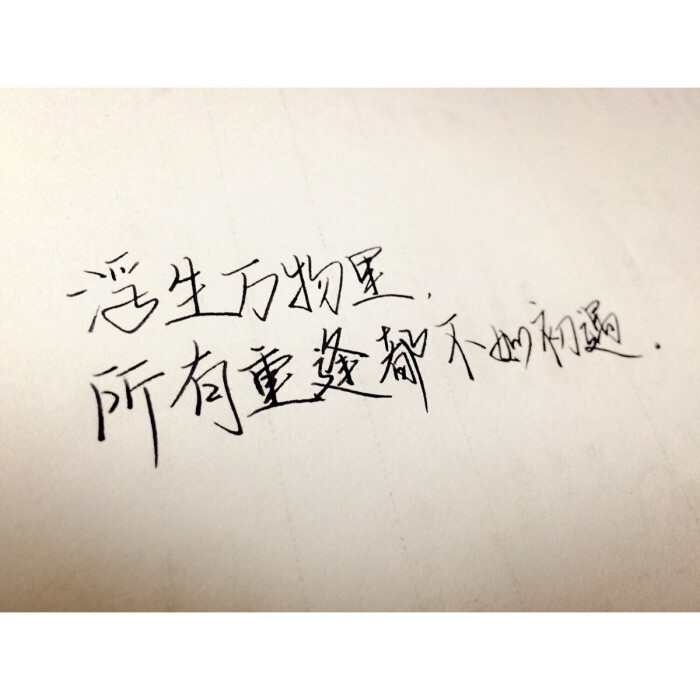 浮生万物里.
所有重逢都不如初遇.